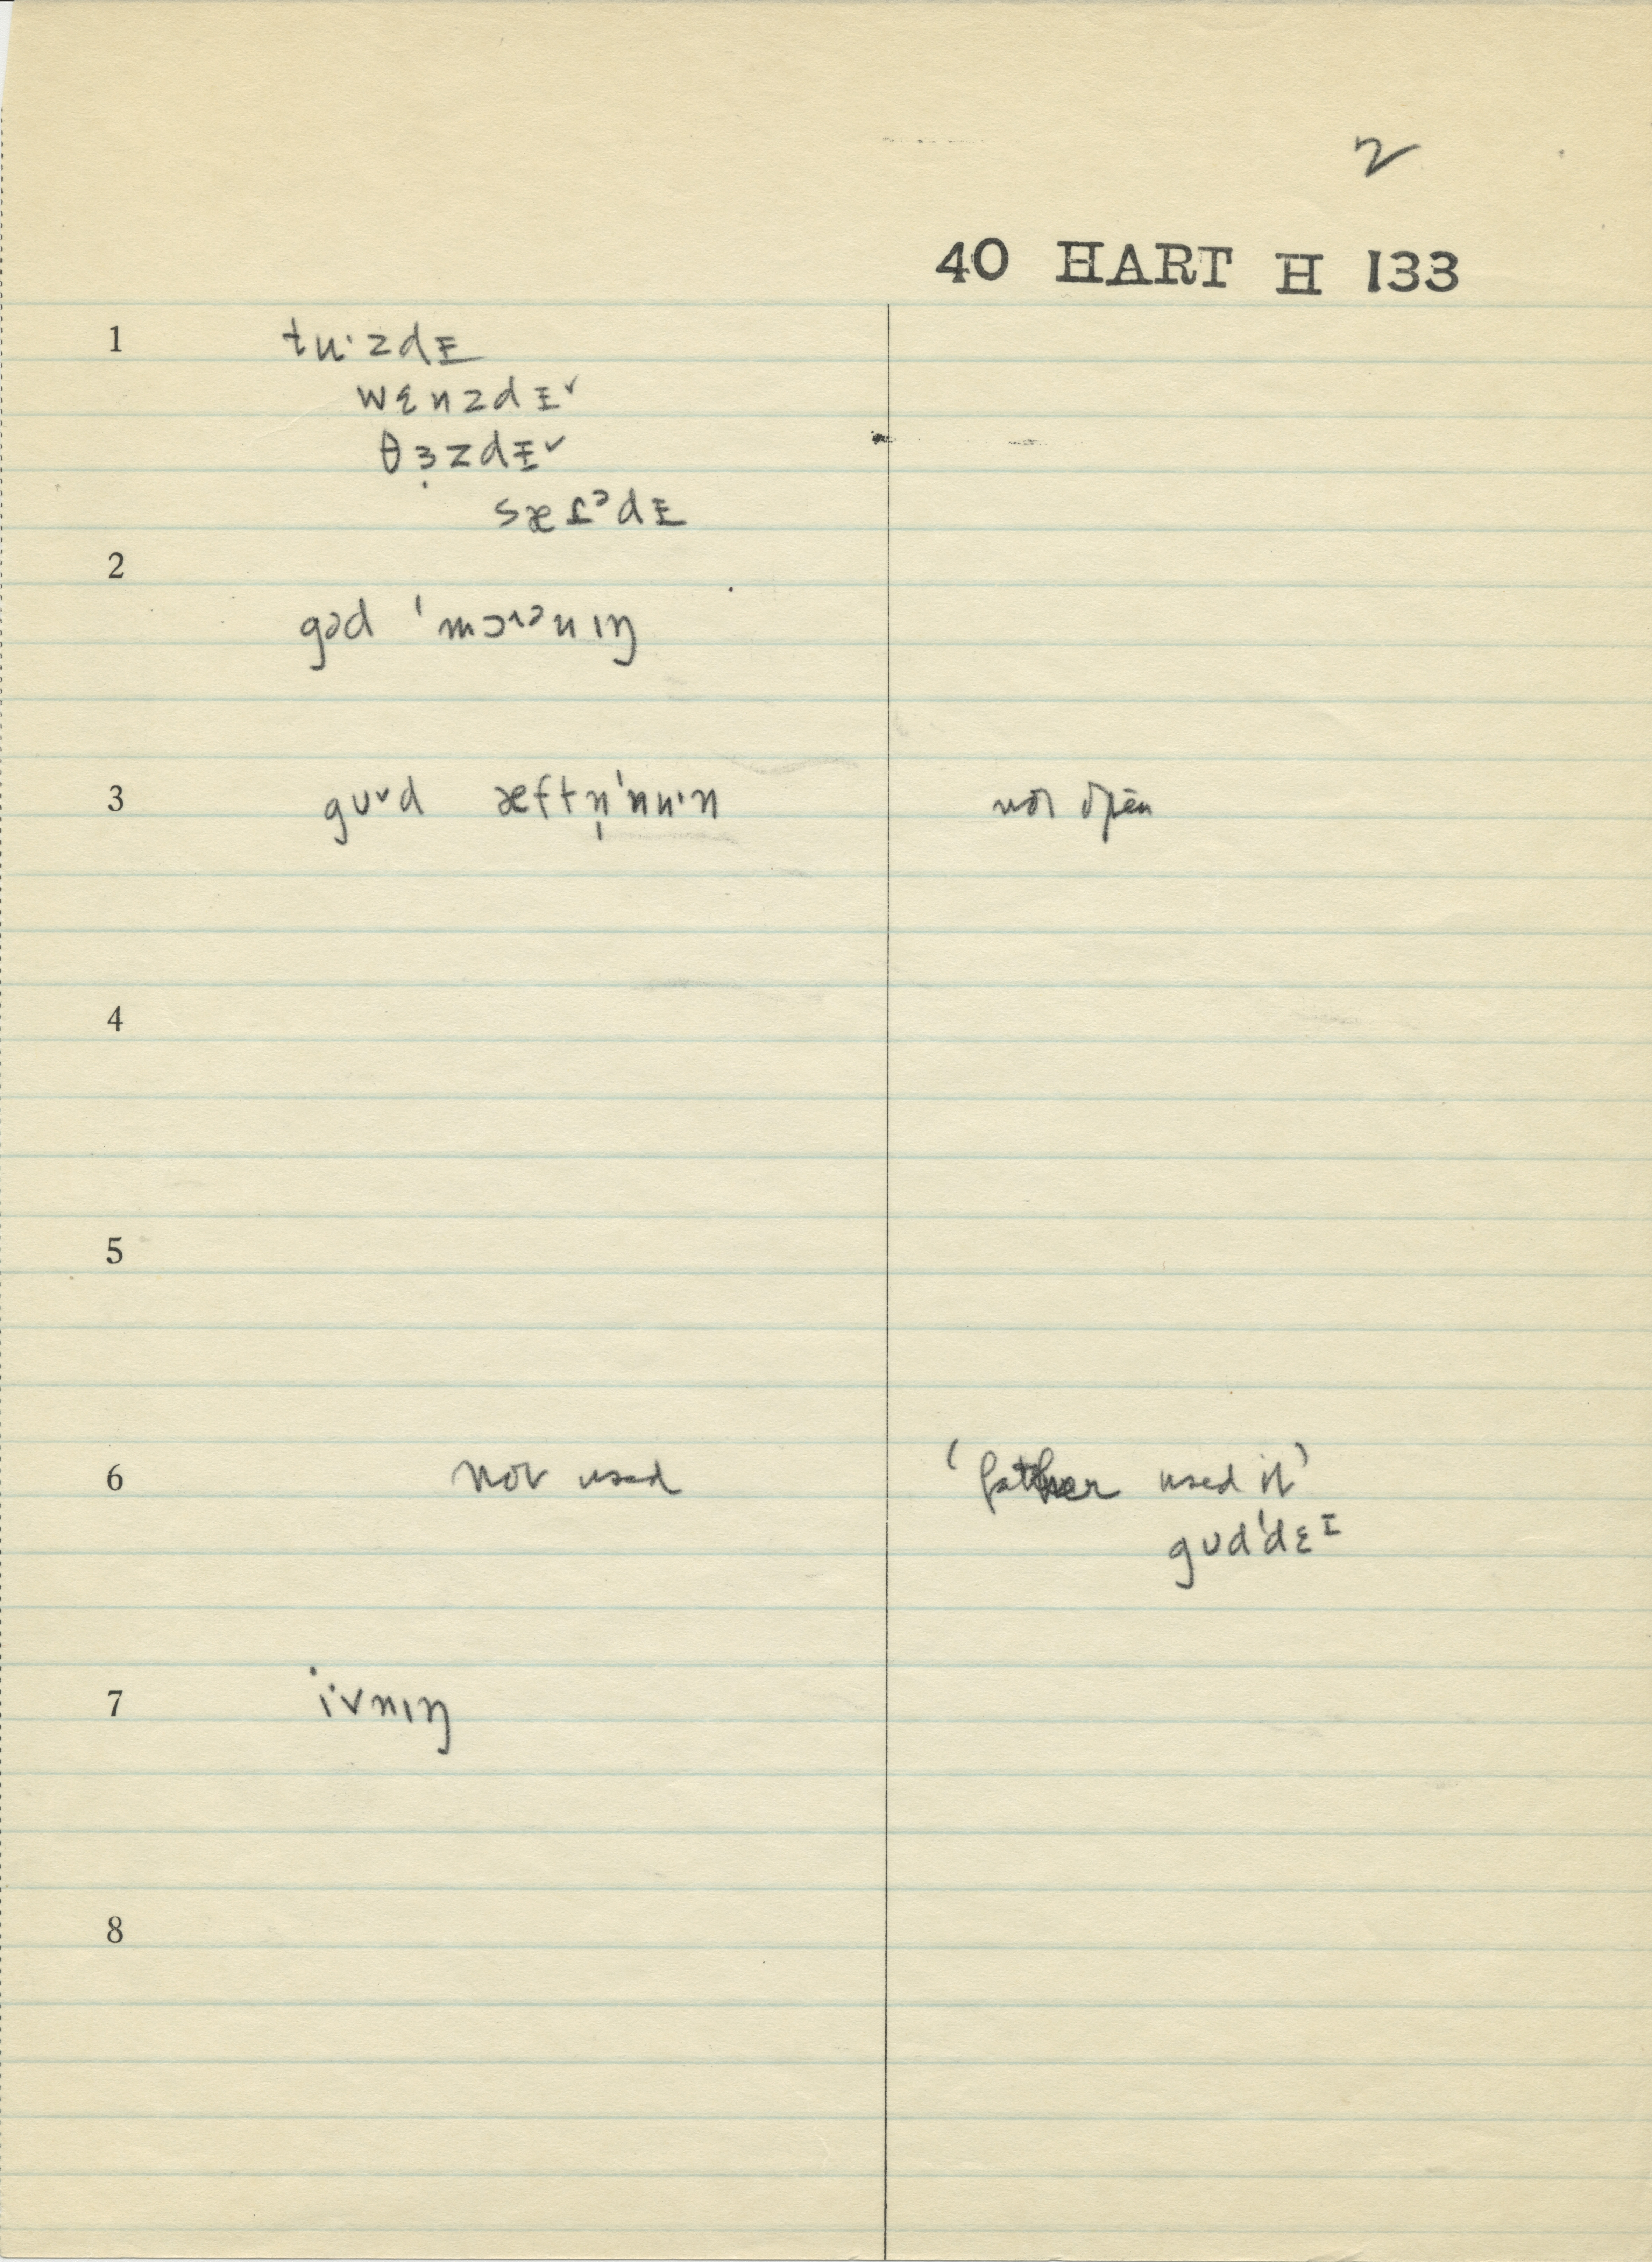 2
40 HART H 133
1 tu·zdɪ
wɛnzdɪ˅
θɜ̣zdɪ˅
sæɾᵊdɪ
2
gəd 'mɔrᵊnɪŋ
3 gʊ˅d æftn̩'nu·n not open
4
5
6 not used 'father used it'
gʊd'dɛᶦ
7 i·vnɪŋ
8